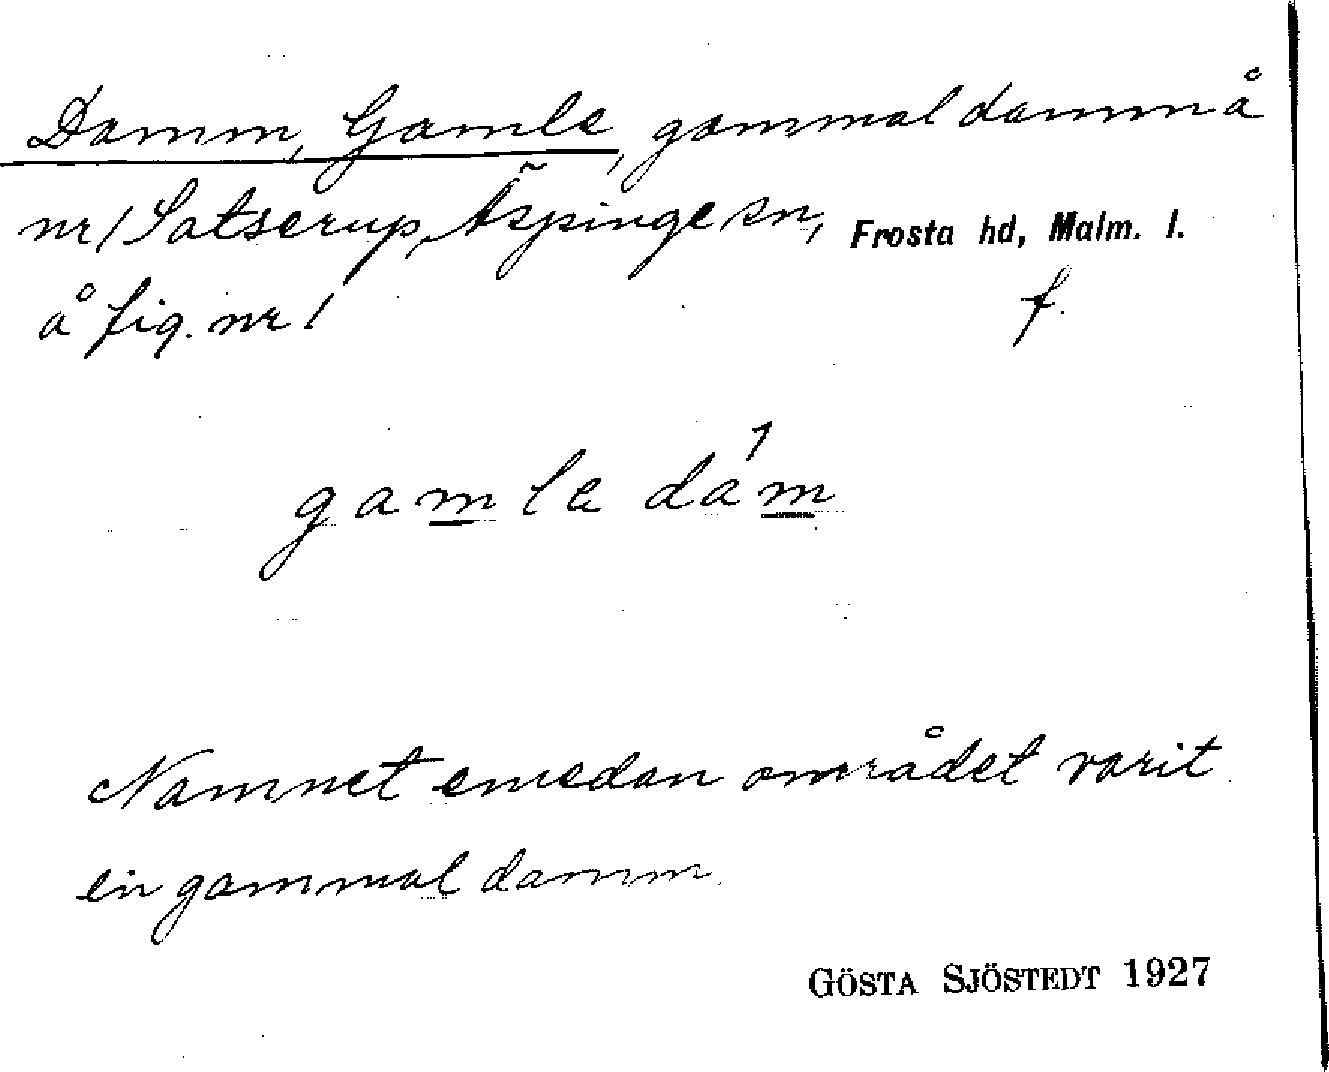 Damm, Gamle, gammal damm å
nr 1 Satserup, Äspinge sn, Frosta hd, Malm. l.
å fig. nr 1 f.
gamle dám
Namnet emedan området varit
en gammal damm.
GÖSTA SJÖSTEDT 1927